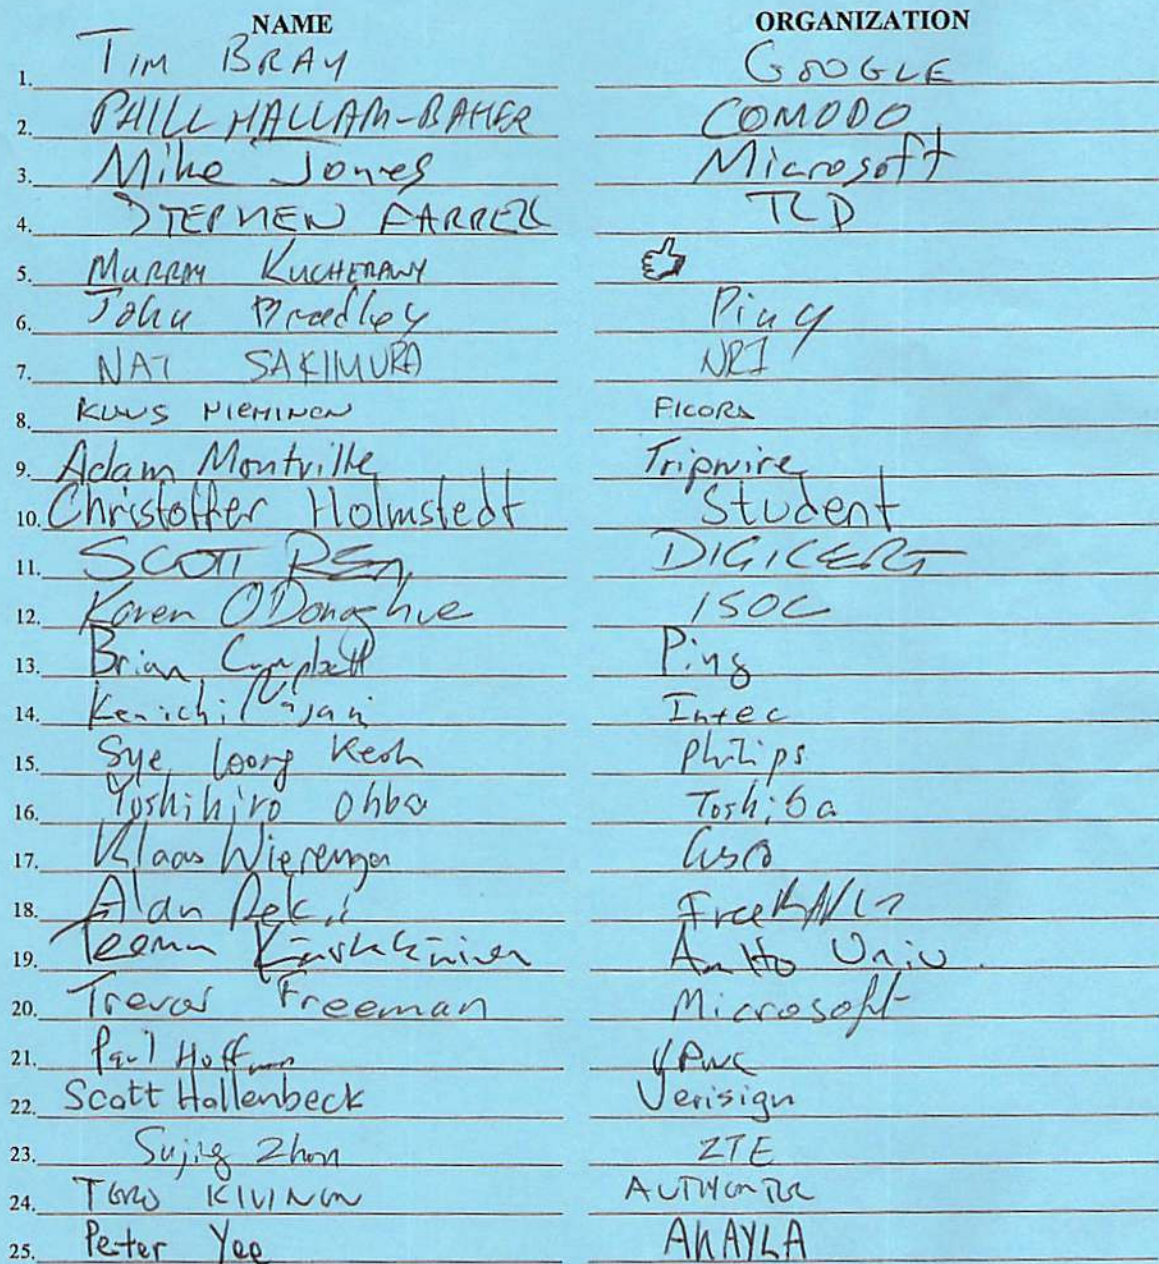 NAME ORGANIZATION
1. TIM BRAY GOOGLE
2. PHILL HALLAM-BAKER COMODO
3. Mike Jones Microsoft
4. STEPHEN FARRELL TCD
5. MURRAY KUCHERAWY
6. John Bradley Ping
7. NAT SAKIMURA NRI
8. NIEMINEN FICORA
9. Adam Montville Tripwire
10. Christoffer Holmstedt Student
11. SCOTT REA DIGICERT
12. Karen O'Donoghue ISOC
13. Brian Campbell Ping
14. Kenichi Intec
15. Sye Loong Keoh Philips
16. Yoshihiro Ohba Toshiba
17. Klaas Wierenga Cisco
18. Alan DeKok
19. Teemu Kärkkäinen Aalto Univ.
20. Trevor Freeman Microsoft
21. Paul Hoffman VPNC
22. Scott Hollenbeck Verisign
23. Sujing Zhou ZTE
24. TERO KIVINEN
25. Peter Yee AKAYLA